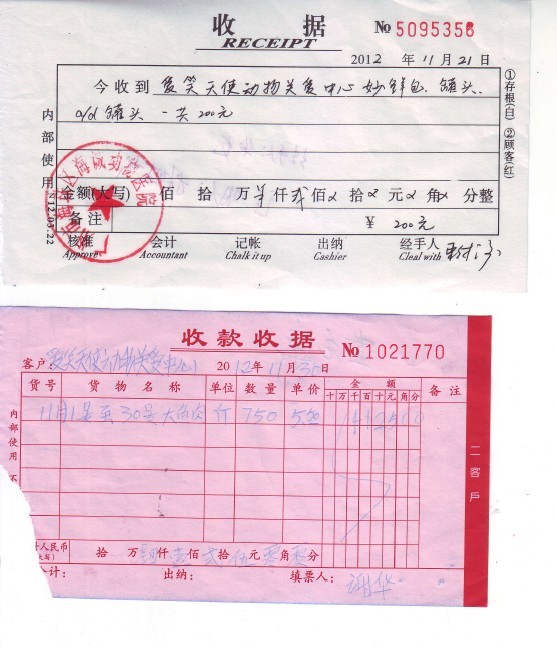 收 据 №5095356
RECEIPT
2012 年 11 月 21 日
今收到 爱笑天使动物关爱中心 妙鲜包、罐头、
a/d 罐头 一共200元
内部使用
①存根(白) ②顾客(红)
金额(大写) 佰 拾 万 仟 贰佰 拾 元 角 分整
备注 ¥ 200元
核准 会计 记帐 出纳 经手人
Approve Accountant Chalk it up Cashier Cleal with
收款收据 №1021770
客户: 爱笑天使动物关爱中心 2012年11月30日
货号 货物名称 单位 数量 单价 金额 备注
十 万 千 百 十 元 角 分
11月1号至30号 斤 750 5.50 4125 0 0
内部使用
二 客户
人民币 拾 万 肆仟 壹佰 贰拾 伍元 零角 零分
会计: 出纳: 填票人: 谢华